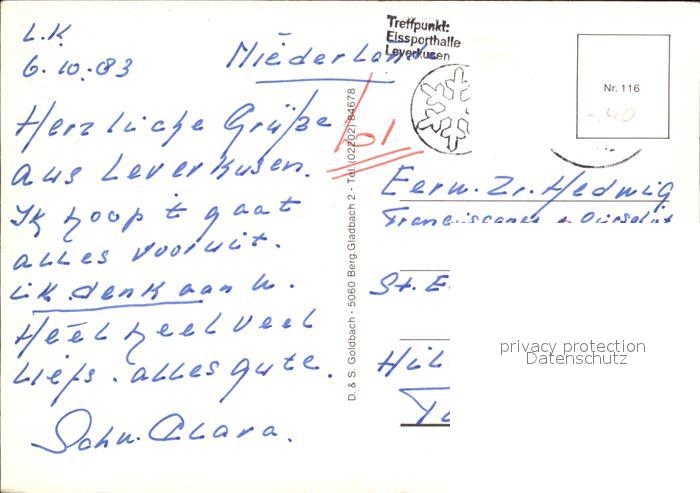 L.K
6.10.83
Niederlande
Herzliche Grüße
aus Leverkusen.
Ik hoop 't gaat
alles vooruit.
Uk denk aan U.
Heél heel veel
liefs. alles gute.
Clara.
D. & S. Goldbach - 5060 Berg.Gladbach 2 - Tel. (02202) 84678
Treffpunkt:
Eissporthalle
Leverkusen
Nr. 116
-.40
Eerw. Zr. Hedwig
St. E
Hil
privacy protection
Datenschutz